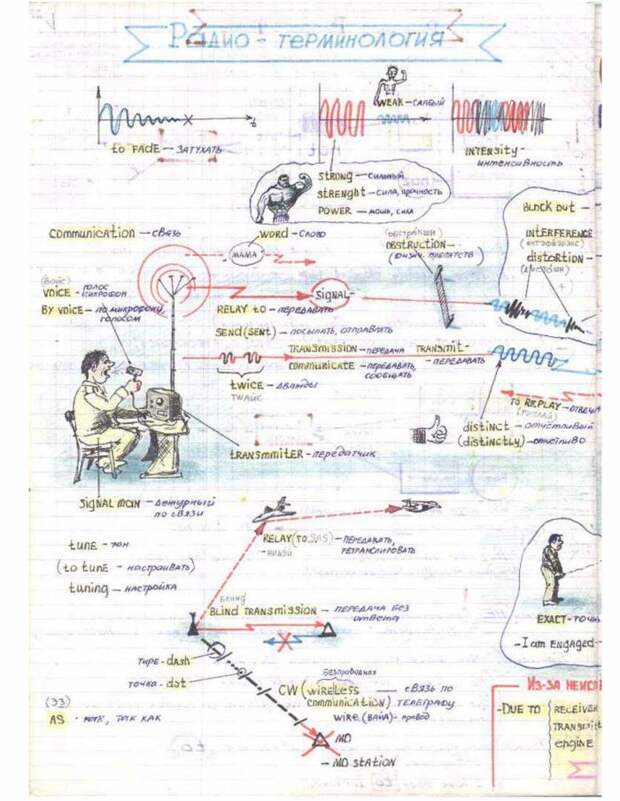 Радио-терминология
WEAK - слабый
to FADE - затухать
INTENSity - интенсивность
STRONG - сильный
STRENGHT - сила, прочность
POWER - мощь, сила
BLOCK OUT -
COMMUNICATION - связь
WORD - слово
МАМА
OBSTRUCTION -
(физич. препятств)
INTERFERENCE
distortion -
VOICE - голос
микрофон
By voice - по микрофону,
голосом
SIGNAL -
RELAY to - передавать
SEND (SENT) - посылать, отправлять
TRANSMISSION - передача
TRANSMIT -
- передавать
communicate - передавать,
сообщать
twice - дважды
ТУАЙС
TO REPLAY - отвеча
distinct - отчетливый
(distinctly) - отчетливо
tRANSMMITER - передатчик
SIGNAL MAN - дежурный
по связи
RELAY (TO SAS) - передавать,
ретранслировать
tune - тон
(to tune - настроивать)
tuning - настройка
EXACT - точн
- I am ENGAGED -
БЛАИНД
BLIND TRANSMISSION - передача без
ответа
тире - dash
точка - dot
безпроводная
CW (wireless
communication) - связь по
телеграфу
WIRE (ВАЙА) - провод
(ЭЗ)
AS - как, так как
MD
- MD STATION
Из-за неиспр
- DUE TO
RECEIVER
TRANSMIT
ENGINE